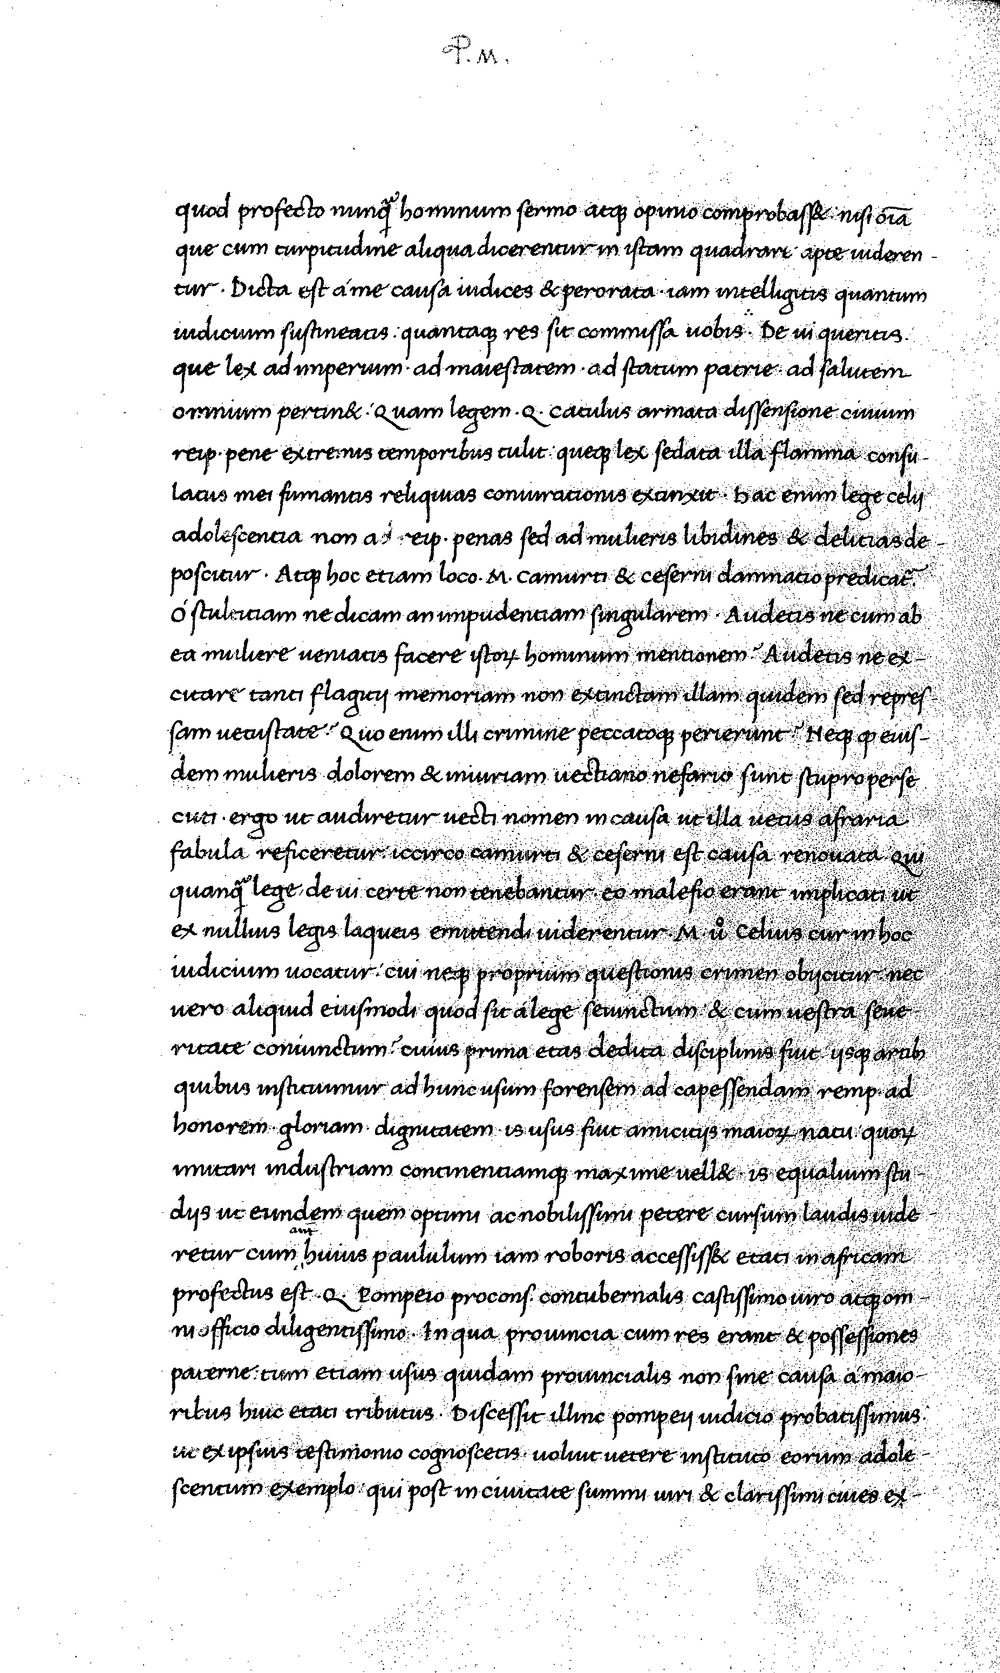 P. M.
quod profecto nunq̄ hominum sermo atq; opinio comprobass& nisi oīa
que cum turpitudine aliqua dicerentur in istam quadrare apte uideren-
tur. Dicta est a me causa iudices & perorata. iam intelligitis quantum
iudicium sustineatis. quantaq; res sit commissa uobis. De ui queritis.
que lex ad imperium. ad maiestatem. ad statum patrie. ad salutem
omnium pertin&. Quam legem. Q. Catulus armata dissensione ciuium
reip. pene extremis temporibus tulit. queq; lex sedata illa flamma consu-
latus mei fumantis reliquias coniurationis extinxit. Hac enim lege celij
adolescentia non ad reip. penas sed ad mulieris libidines & delitias de-
poscitur. Atq; hoc etiam loco. M. Camurti & ceserni damnatio predicat̄.
O stultitiam ne dicam an impudentiam singularem. Audetis ne cum ab
ea muliere ueniatis facere istoꝝ hominum mentionem? Audetis ne ex-
citare tanti flagitij memoriam non extinctam illam quidem sed repres
sam uetustate? Quo enim illi crimine peccatoq; perierunt? Neq; ꝙ eius-
dem mulieris dolorem & iniuriam uectiano nefario sunt stupro perse
cuti. ergo ut audiretur uecti nomen in causa ut illa uetus afraria
fabula reficeretur. iccirco camurti & ceserni est causa renouata. Qui
quanq̄ lege de ui certe non tenebantur. eo malefio erant implicati ut
ex nullius legis laqueis emittendi uiderentur. M. ů Celius cur in hoc
iudicium uocatur. cui neq; proprium questionis crimen obijcitur nec
uero aliquid eiusmodi quod sit a lege seiunctum. & cum uestra seue
ritate coniunctum? cuius prima etas dedita disciplinis fuit. ijsq; artib
quibus instituimur ad hunc usum forensem ad capessendam remp. ad
honorem. gloriam. dignitatem. is usus fuit amicitijs maioꝝ natu. quoꝝ
imitari industriam continentiamq; maxime uell&. is equalium stu-
dijs ut eundem quem optimi ac nobilissimi petere cursum laudis uide
retur cum aut̄ huius paululum iam roboris accessiss& etati in africam
profectus est. Q. Pompeio procons. contubernalis castissimo uiro atq; om-
ni officio diligentissimo. In qua prouincia cum res erant & possessiones
paterne. tum etiam usus quidam prouincialis non sine causa a maio-
ribus huic etati tributus. Discessit illinc pompeij iudicio probatissimus.
ut ex ipsius testimonio cognoscetis. uoluit uetere instituto eorum adole-
scentum exemplo. qui post in ciuitate summi uiri & clarissimi ciues ex-